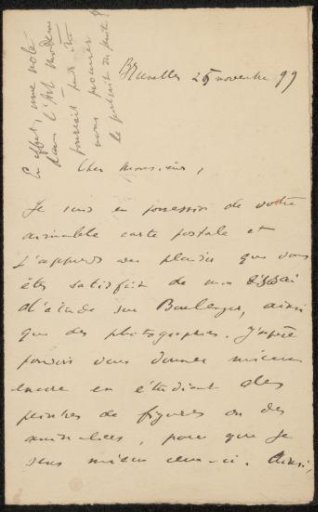 Bruxelles 25 novembre 99
Cher Monsieur,
Je suis en possession de votre
aimable carte postale et
j'apprends avec plaisir que vous
êtes satisfait de mon essai
d'étude sur Boulenger, ainsi
que des photographies. J'espère
pouvoir vous donner mieux
encore en étudiant des
peintres de figures ou des
animaliers, parce que je
sens mieux ceux-ci. Ainsi,
En effet, une note
dans l'Art moderne
pourrait peut-être
vous procurer
le